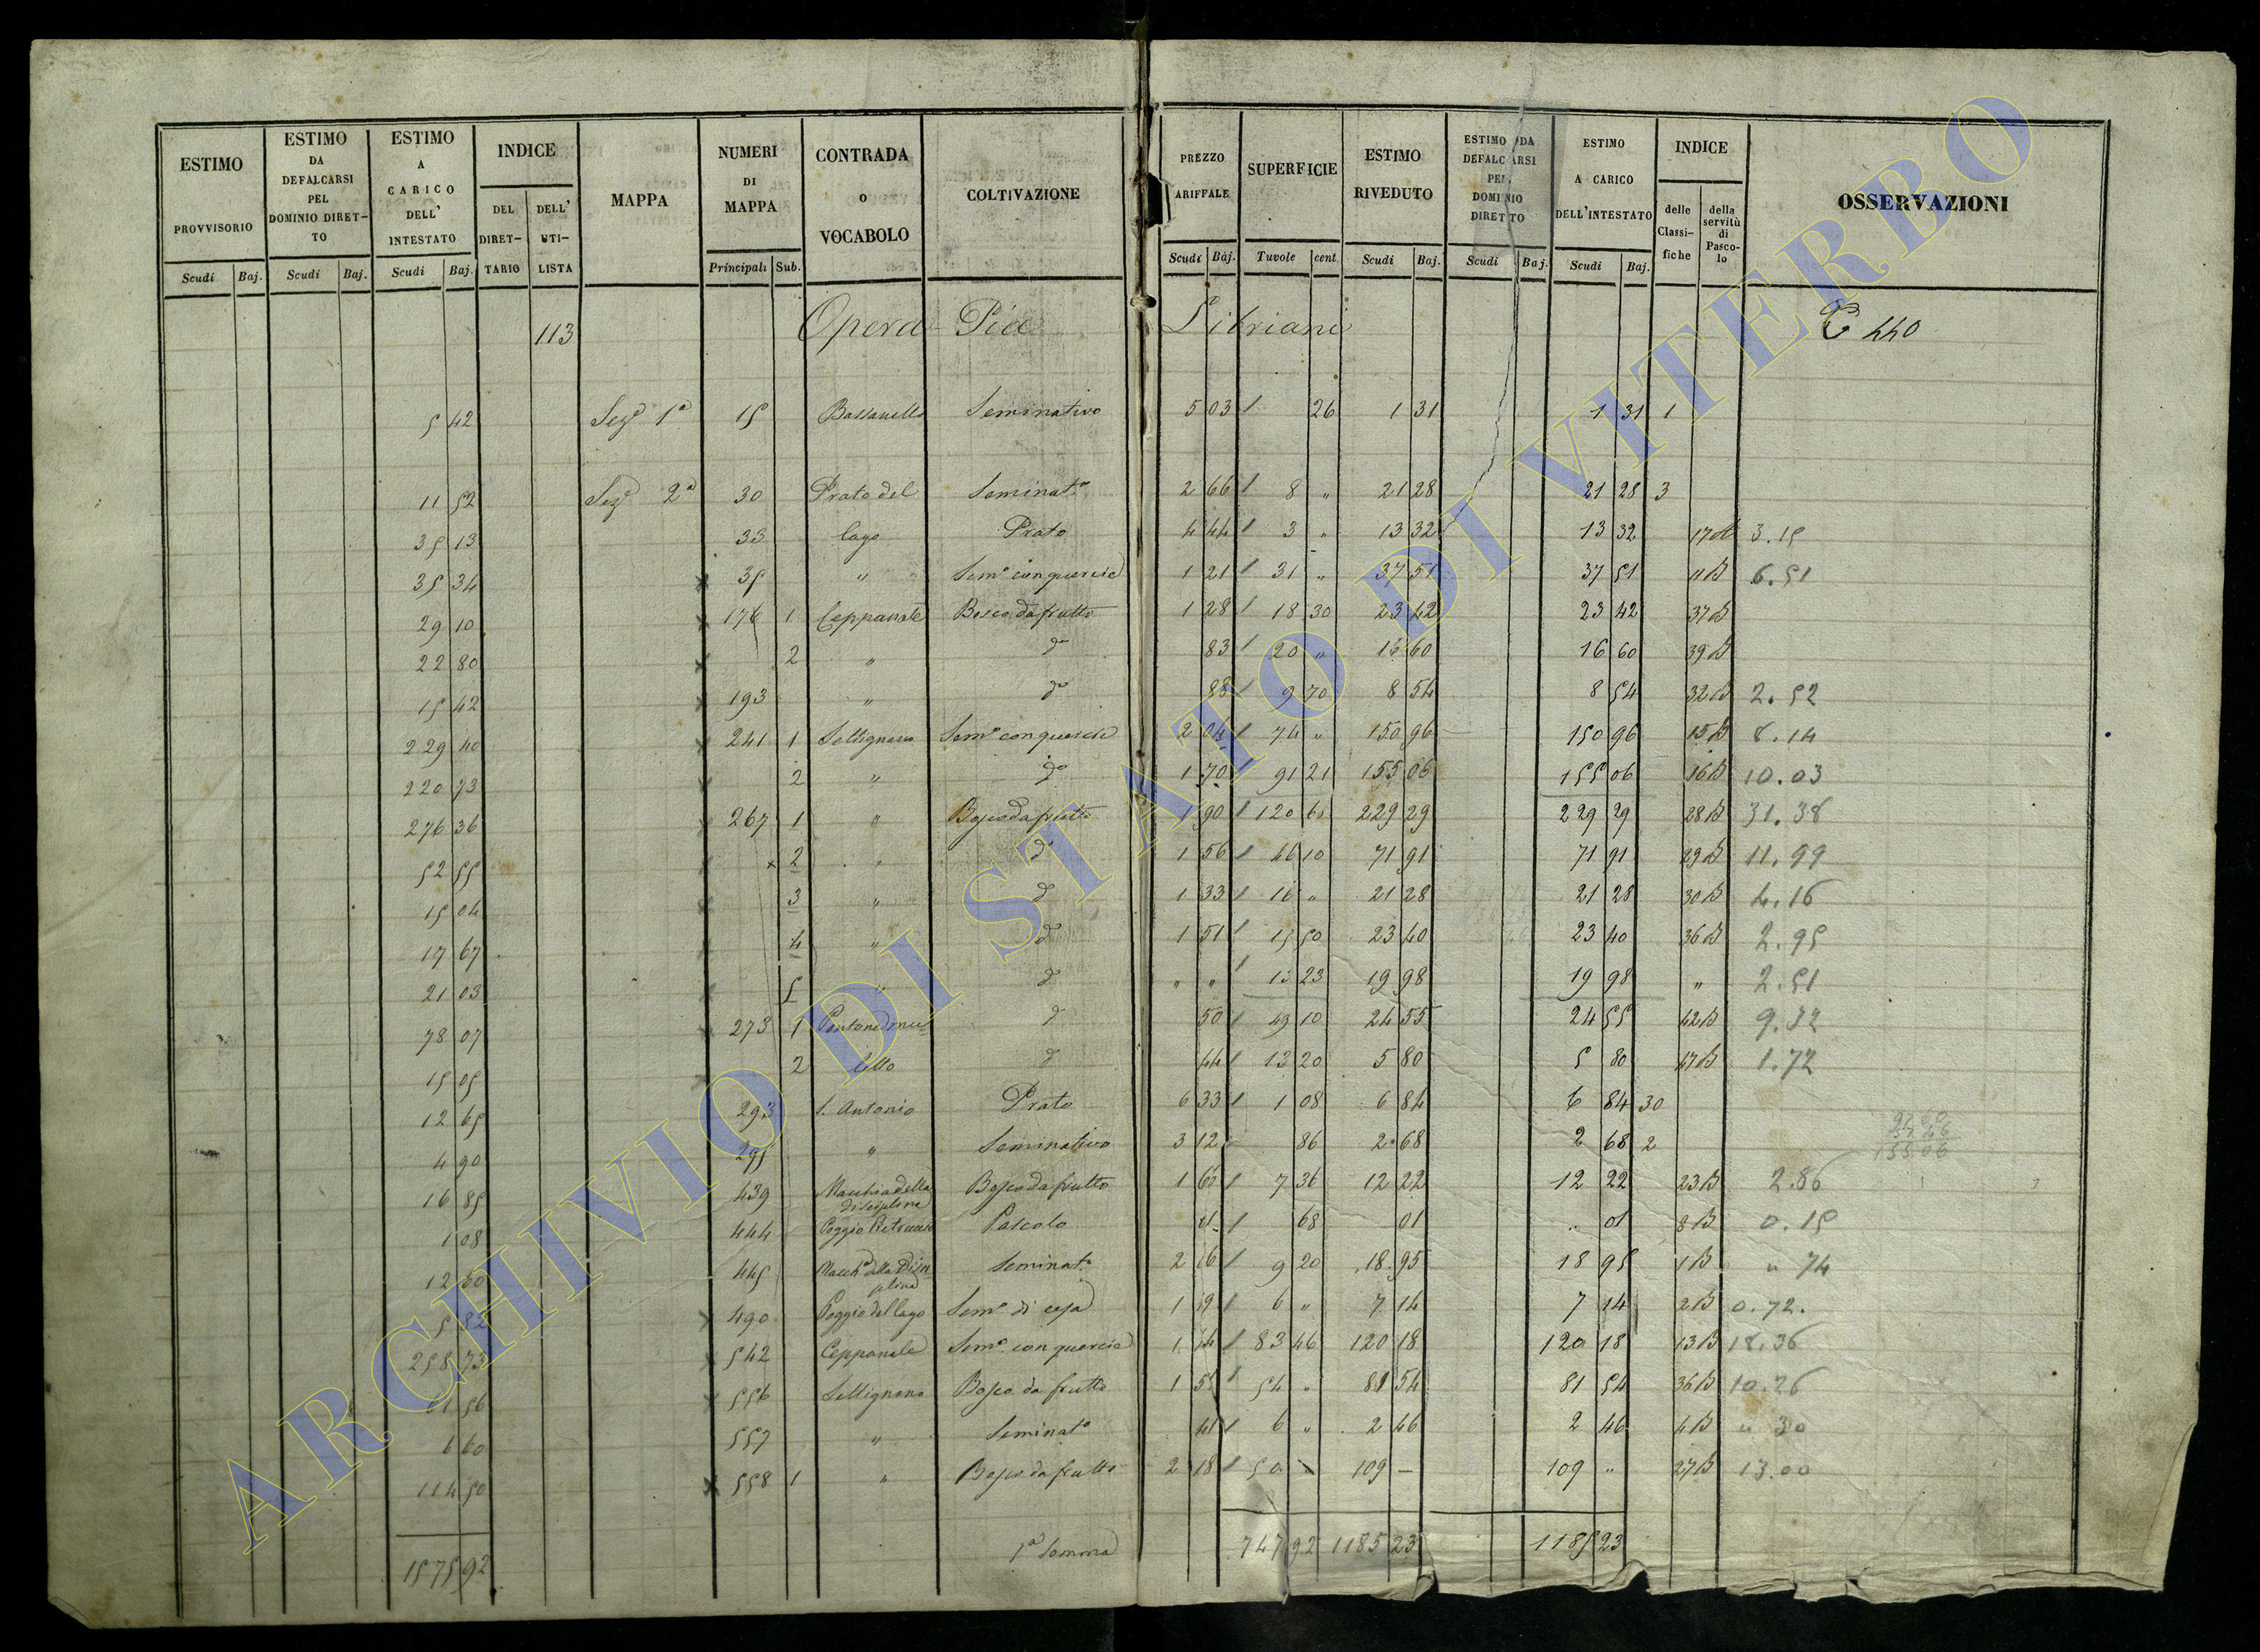 ESTIMO PROVVISORIO Scudi Baj.
ESTIMO DA DEFALCARSI PEL DOMINIO DIRETTO Scudi Baj.
ESTIMO A CARICO DELL' INTESTATO Scudi Baj.
INDICE DEL DIRETTARIO DELL' UTILISTA
MAPPA
NUMERI DI MAPPA Principali Sub.
CONTRADA O VOCABOLO
COLTIVAZIONE
PREZZO ARIFFALE Scudi Baj.
SUPERFICIE Tavole cent
ESTIMO RIVEDUTO Scudi Baj.
ESTIMO DA DEFALCARSI PEL DOMINIO DIRETTO Scudi Baj.
ESTIMO A CARICO DELL'INTESTATO Scudi Baj.
INDICE delle Classifiche della servitù di Pascolo
OSSERVAZIONI
113 Opera Pia 440
5 42 Sez.e 1a 15 Bassanello Seminativo 5 03 26 1 31 1 31 1
11 52 Sez.e 2a 30 Prato del Seminato 2 66 8 " 21 28 21 28 3
35 13 33 lago Prato 4 44 3 " 13 32 13 32 3.15
35 34 35 " Semo con quercie 1 21 31 " 37 51 37 51 11B 6.51
29 10 176 1 Ceppanale Bosco da frutto 1 28 18 30 23 42 23 42 37B
22 80 2 " do 83 20 " 16 60 16 60 39B
15 42 193 " do 88 9 70 8 54 8 54 32B 2.52
229 40 241 1 Settignano Semo con quercie 2 04 74 " 150 96 150 96 15B 8.14
220 73 2 " do 1 70 91 21 155 06 155 06 16B 10.03
276 36 267 1 " Bosco da frutto 1 90 120 229 29 229 29 28B 31.38
52 55 2 " do 1 56 46 10 71 91 71 91 29B 11.99
15 04 3 " do 1 33 16 " 21 28 21 28 30B 4.16
17 67 4 " do 1 51 15 50 23 40 23 40 36B 2.95
21 03 5 " do " " 13 23 19 98 19 98 " 2.51
78 07 273 1 do 50 49 10 24 55 24 55 42B 9.32
15 05 2 do 44 13 20 5 80 5 80 47B 1.72
12 65 293 S. Antonio Prato 6 33 1 08 6 84 6 84 30
4 90 295 " Seminativo 3 12 86 2 68 2 68 2
16 85 439 Macchia della disciplina Bosco da frutto 1 66 7 36 12 22 12 22 23B 2.86
1 08 444 Poggio Pascolo 68 01 01 8B 0.15
445 Macch.a della Disciplina Seminato 2 06 9 20 18 95 18 95 1B " 74
5 82 490 Poggio del lago Semo di cesa 1 19 6 " 7 14 7 14 2B 0.72.
258 73 542 Ceppanale Semo con quercia 1 44 83 46 120 18 120 18 13B 18.36
556 Settignano Bosco da frutto 1 51 54 " 81 54 81 54 36B 10.26
6 60 557 " Seminato 41 6 " 2 46 2 46 4B " 30
114 50 558 1 " Bosco da frutto 2 18 50 109 – 109 " 27B 13.00
1575 92 1a Somma 747 92 1185 23 1185 23
ARCHIVIO DI STATO DI VITERBO